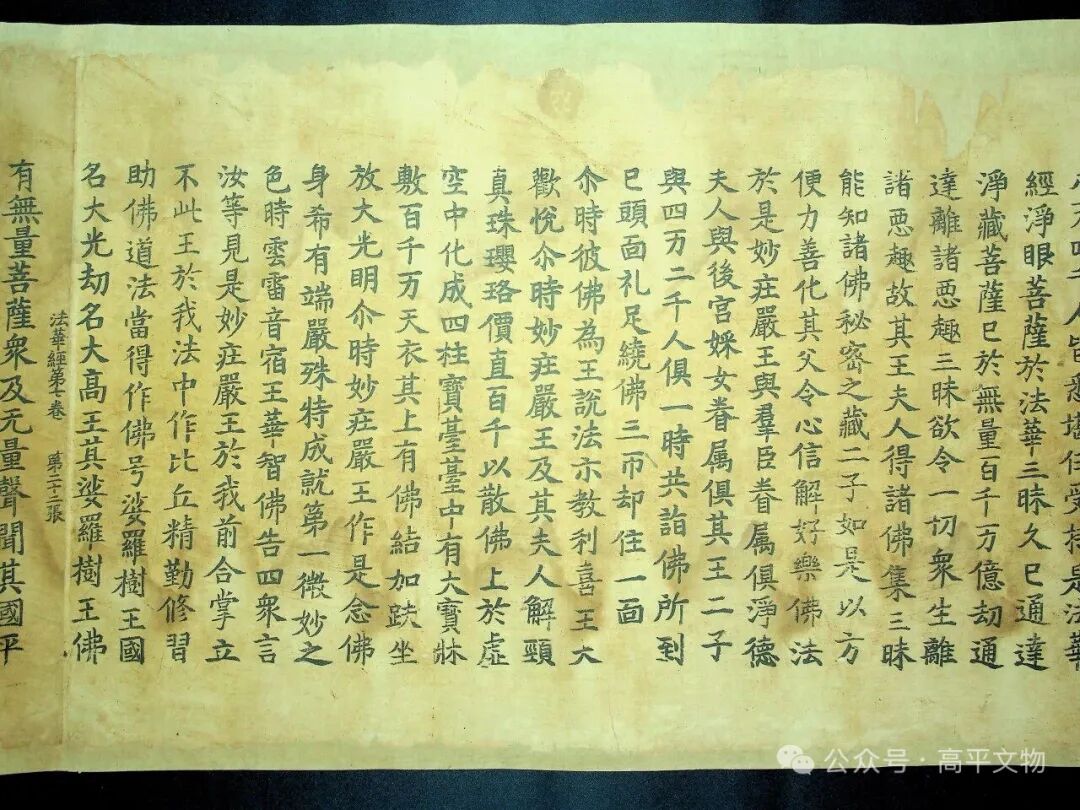 千人皆悉堪任受持是法華
經淨眼菩薩於法華三昧久已通達
淨藏菩薩已於無量百千万億劫通
達離諸惡趣三昧欲令一切衆生離
諸惡趣故其王夫人得諸佛集三昧
能知諸佛秘密之藏二子如是以方
便力善化其父令心信解好樂佛法
於是妙庄嚴王與羣臣眷属俱淨德
夫人與後宮婇女眷属俱其王二子
與四万二千人俱一時共詣佛所到
已頭面礼足繞佛三帀却住一面
尒時彼佛為王說法示教利喜王大
歡悅尒時妙庄嚴王及其夫人解頸
真珠瓔珞價直百千以散佛上於虛
空中化成四柱寶臺臺中有大寶牀
敷百千万天衣其上有佛結加趺坐
放大光明尒時妙庄嚴王作是念佛
身希有端嚴殊特成就第一微妙之
色時雲雷音宿王華智佛告四衆言
汝等見是妙庄嚴王於我前合掌立
不此王於我法中作比丘精勤修習
助佛道法當得作佛号娑羅樹王國
名大光劫名大高王其娑羅樹王佛
法華經第七卷 第二十二張
有無量菩薩衆及无量聲聞其國平
公众号·高平文物